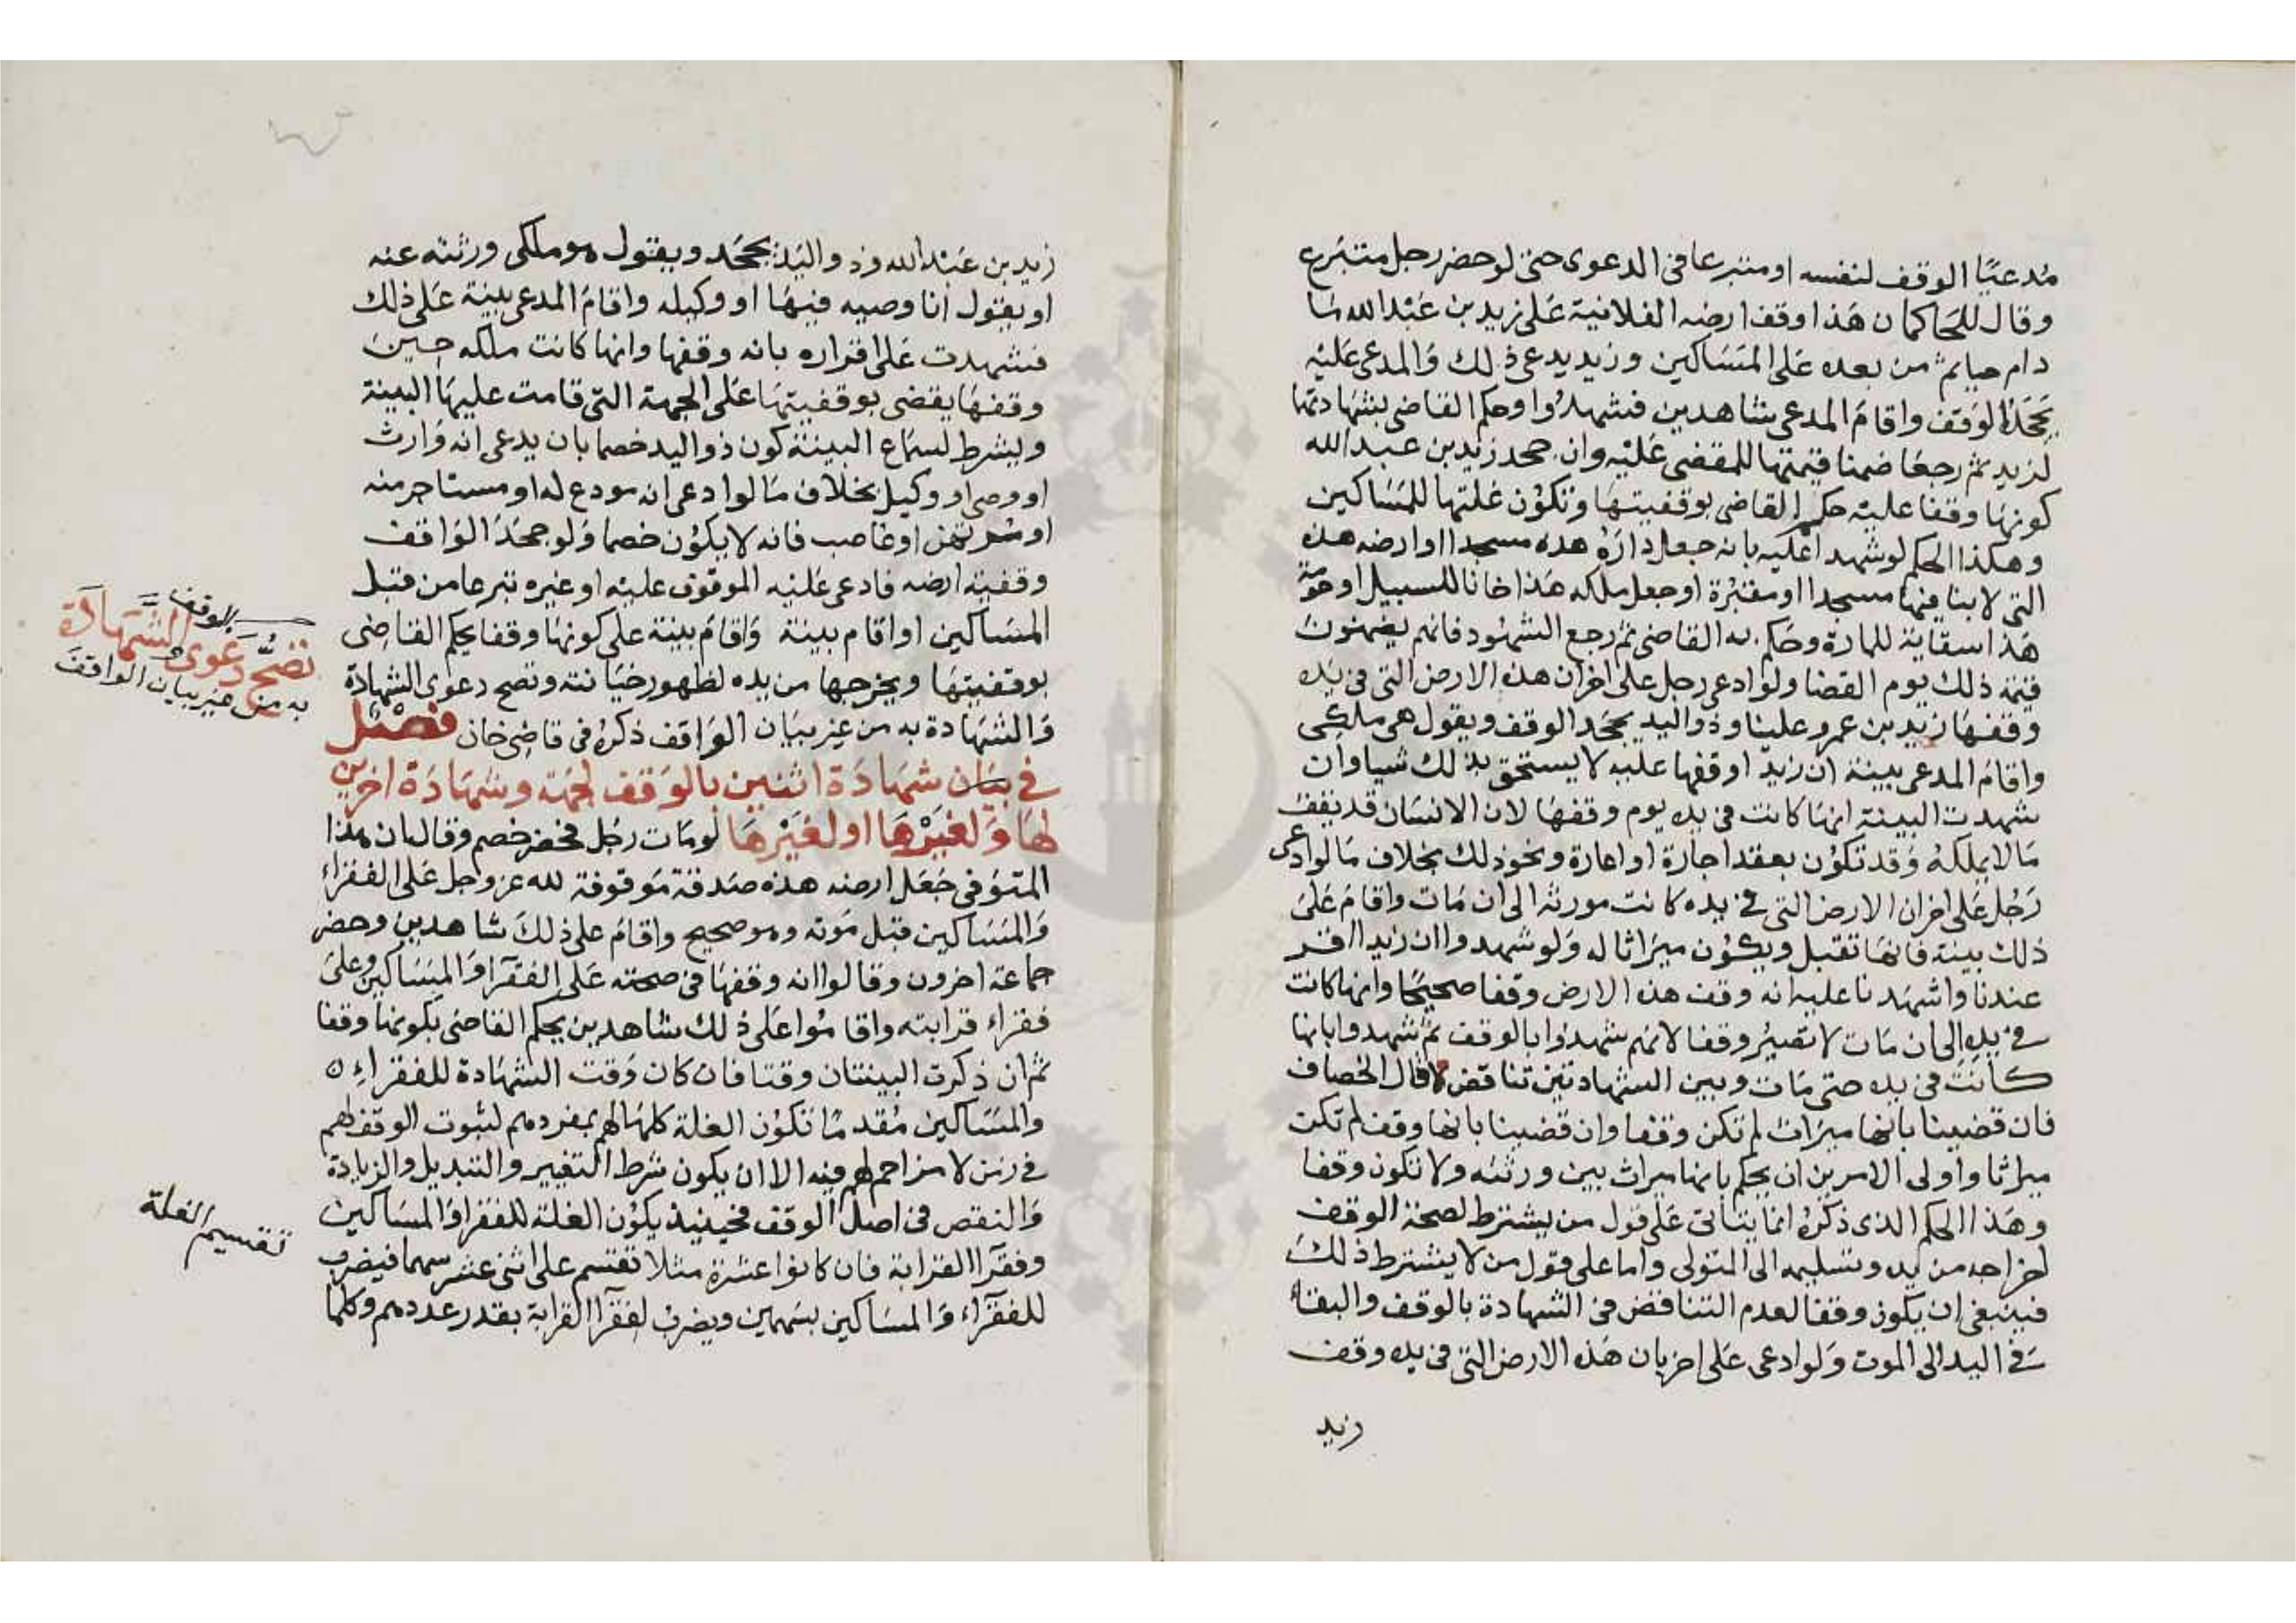 مُدعيًا الوقف لنفسه او متبرعا فى الدعوى حتى لو حضر رجل متبرع
وقال للحاكم ان هَذا وقف ارضه الفلانية عَلى زيد بن عَبْد الله مَا
دام حيا ثم من بعده عَلى المسَاكين وزيد يدعى ذلك وَالمدعى عَليْه
يَجحَدُ الوَقف واقامَ المدعى شاهدين فشهدُوا وحكم القاضى بشهادتهَا
لزيد ثم رجعَا ضمنا قيمتها للمقضى عَليْه وان جحد زيد بن عبد الله
كونهَا وقفا عليْه حكم القاضى بوقفيتهَا وتكوُن غلتها للمَسَاكين
وهكذا الحكم لو شهدا عليه بانه جعل دارَهُ هذه مسجدا او ارضه هذه
التى لا بنا فيها مسجدا او مقبُرة او جعل ملكه هَذا خانا للسبيل او
هَذا سقاية للمارة وحَكم به القاضى ثم رجع الشهُود فانهم يضمنون
قيمة ذلك يوم القضا ولو ادعى رجل على اخر ان هذه الارض التى فى يَده
وقفهَا زيد بن عمرو علينا وذو اليد يجحَد الوقف ويقول هى ملكى
واقامَ المدعى بينة ان زيدا وقفها عليه لا يستحق بذلك شيا وان
شهدت البينة انهَا كانت فى يده يوم وقفهَا لان الانسَان قد يقف
مَا لا يملكهُ وَقد تكوُن بعقد اجارة او اعارة ونحو ذلك بخلاف مَا لو ادعى
رَجُل عَلى اخر ان الارض التى فى يده كانت مورثه الى ان مَات واقامَ عَلىَ
ذلك بينة فانهَا تقبل ويكوُن ميرَاثا له وَلو شهدوا ان زيدا اقر
عندنا واشهدنا عليه انه وقف هذه الارض وقفا صحيحًا وانها كانت
فى يده الى ان مَات لا تصيرُ وقفا لانهم شهدوُا بالوقف ثم شهدوا بانها
كانَت فى يده حتى مَات وبين الشهادتين تناقض قال الخصاف
فان قضينا بانها ميرَاث لم تكن وقفا وان قضينا بانها وقف لم تكن
ميراثا واولى الامرين ان يحكم بانها ميراث بين ورثته ولا تكون وقفا
وهَذا الحكم الذى ذكرهُ انما يتاتى عَلى قول من يشترط لصحة الوقف
اخراجه من يده وتسليمه الى المتولى واما على قول من لا يشترط ذلكَ
فينبغى ان يكون وقفا لعدم التناقض فى الشهادة بالوقف والبقاء
فى اليد الى الموت وَلو ادعى عَلى اخر بان هَذه الارض التى فى يده وقف
زيد
زيد بن عَبْد الله وذو اليَد يجحَد ويقول هو ملكى ورثته عنه
او يقول انا وصيه فيهَا او وكيله واقامَ المدعى بينة عَلى ذلك
فشهدت عَلى اقراره بانه وقفها وانها كانت ملكه حينَ
وقفهَا يقضى بوقفيتهَا عَلى الجهة التى قامت عليهَا البينة
ويشرط لسمَاع البينة كون ذو اليد خصما بان يدعى انه وَارث
او وصى او وكيل بخلاف مَا لو ادعى انه مودع له او مستاجر منه
او مُرتهن او غاصب فانه لا يكوُن خصما وَلو جحَدَ الوَاقف
وقفية ارضه فادعى عَليْه الموقوف عليْه او غيره تبرعا من قبل
المسَاكين او اقام بينة وَاقامَ بينة على كونهَا وقفا يحكم القاضى
بوقفيتهَا ويخرجها من يده لظهور خيَانته وتصح دعوى الشهادة
وَالشهَادة به من غير بيَان الوَاقف ذكرهُ فى قاضى خان فصْل
فى بيَان شهَادَة اثنين بالوَقف لجهَة وشهَادَة اخرين
لهَا وَلغيْرهَا او لغيْرهَا لو مَات رجُل فحضر خصم وقال ان هذا
المتوَفى جَعَل ارضه هذه صَدقة مَوقوفة لله عز وجل عَلى الفقراء
وَالمسَاكين قبل مَوته وهو صحيح واقامَ على ذلكَ شاهدين وحضر
جماعة اخرون وقالوا انه وقفهَا فى صحته عَلى الفقرَا وَالمسَاكين وعلىَ
فقراء قرابته واقامُوا عَلى ذلك شاهدين يحكم القاضى بكونهَا وقفا
ثم ان ذكرت البينتان وقتا فان كان وَقت الشهَادة للفقراء ٥
والمسَاكين مُقدمًا تكوُن الغلة كلهَا لهم بمفردهم لثبوت الوقف لهم
فى زمن لا مزاحم لهم فيه الا ان يكون شرط التغيير والتبديل والزيادة
وَالنقص فى اصل الوقف فحينيذ يكوُن الغلة للفقرا وَالمسَاكين
وفقرَا القرَابة فان كانوا عشرة مثلا تقتسم على اثنى عشر سهما فيضرب
للفقرَاء وَالمسَاكين بسَهمين ويضرب لفقرَا القرابة بقدر عددهم وكلما
بالوقف
تصحُّ دَعوى الشهَادَة
به من غير بيان الواقف
تقسيم الغلة